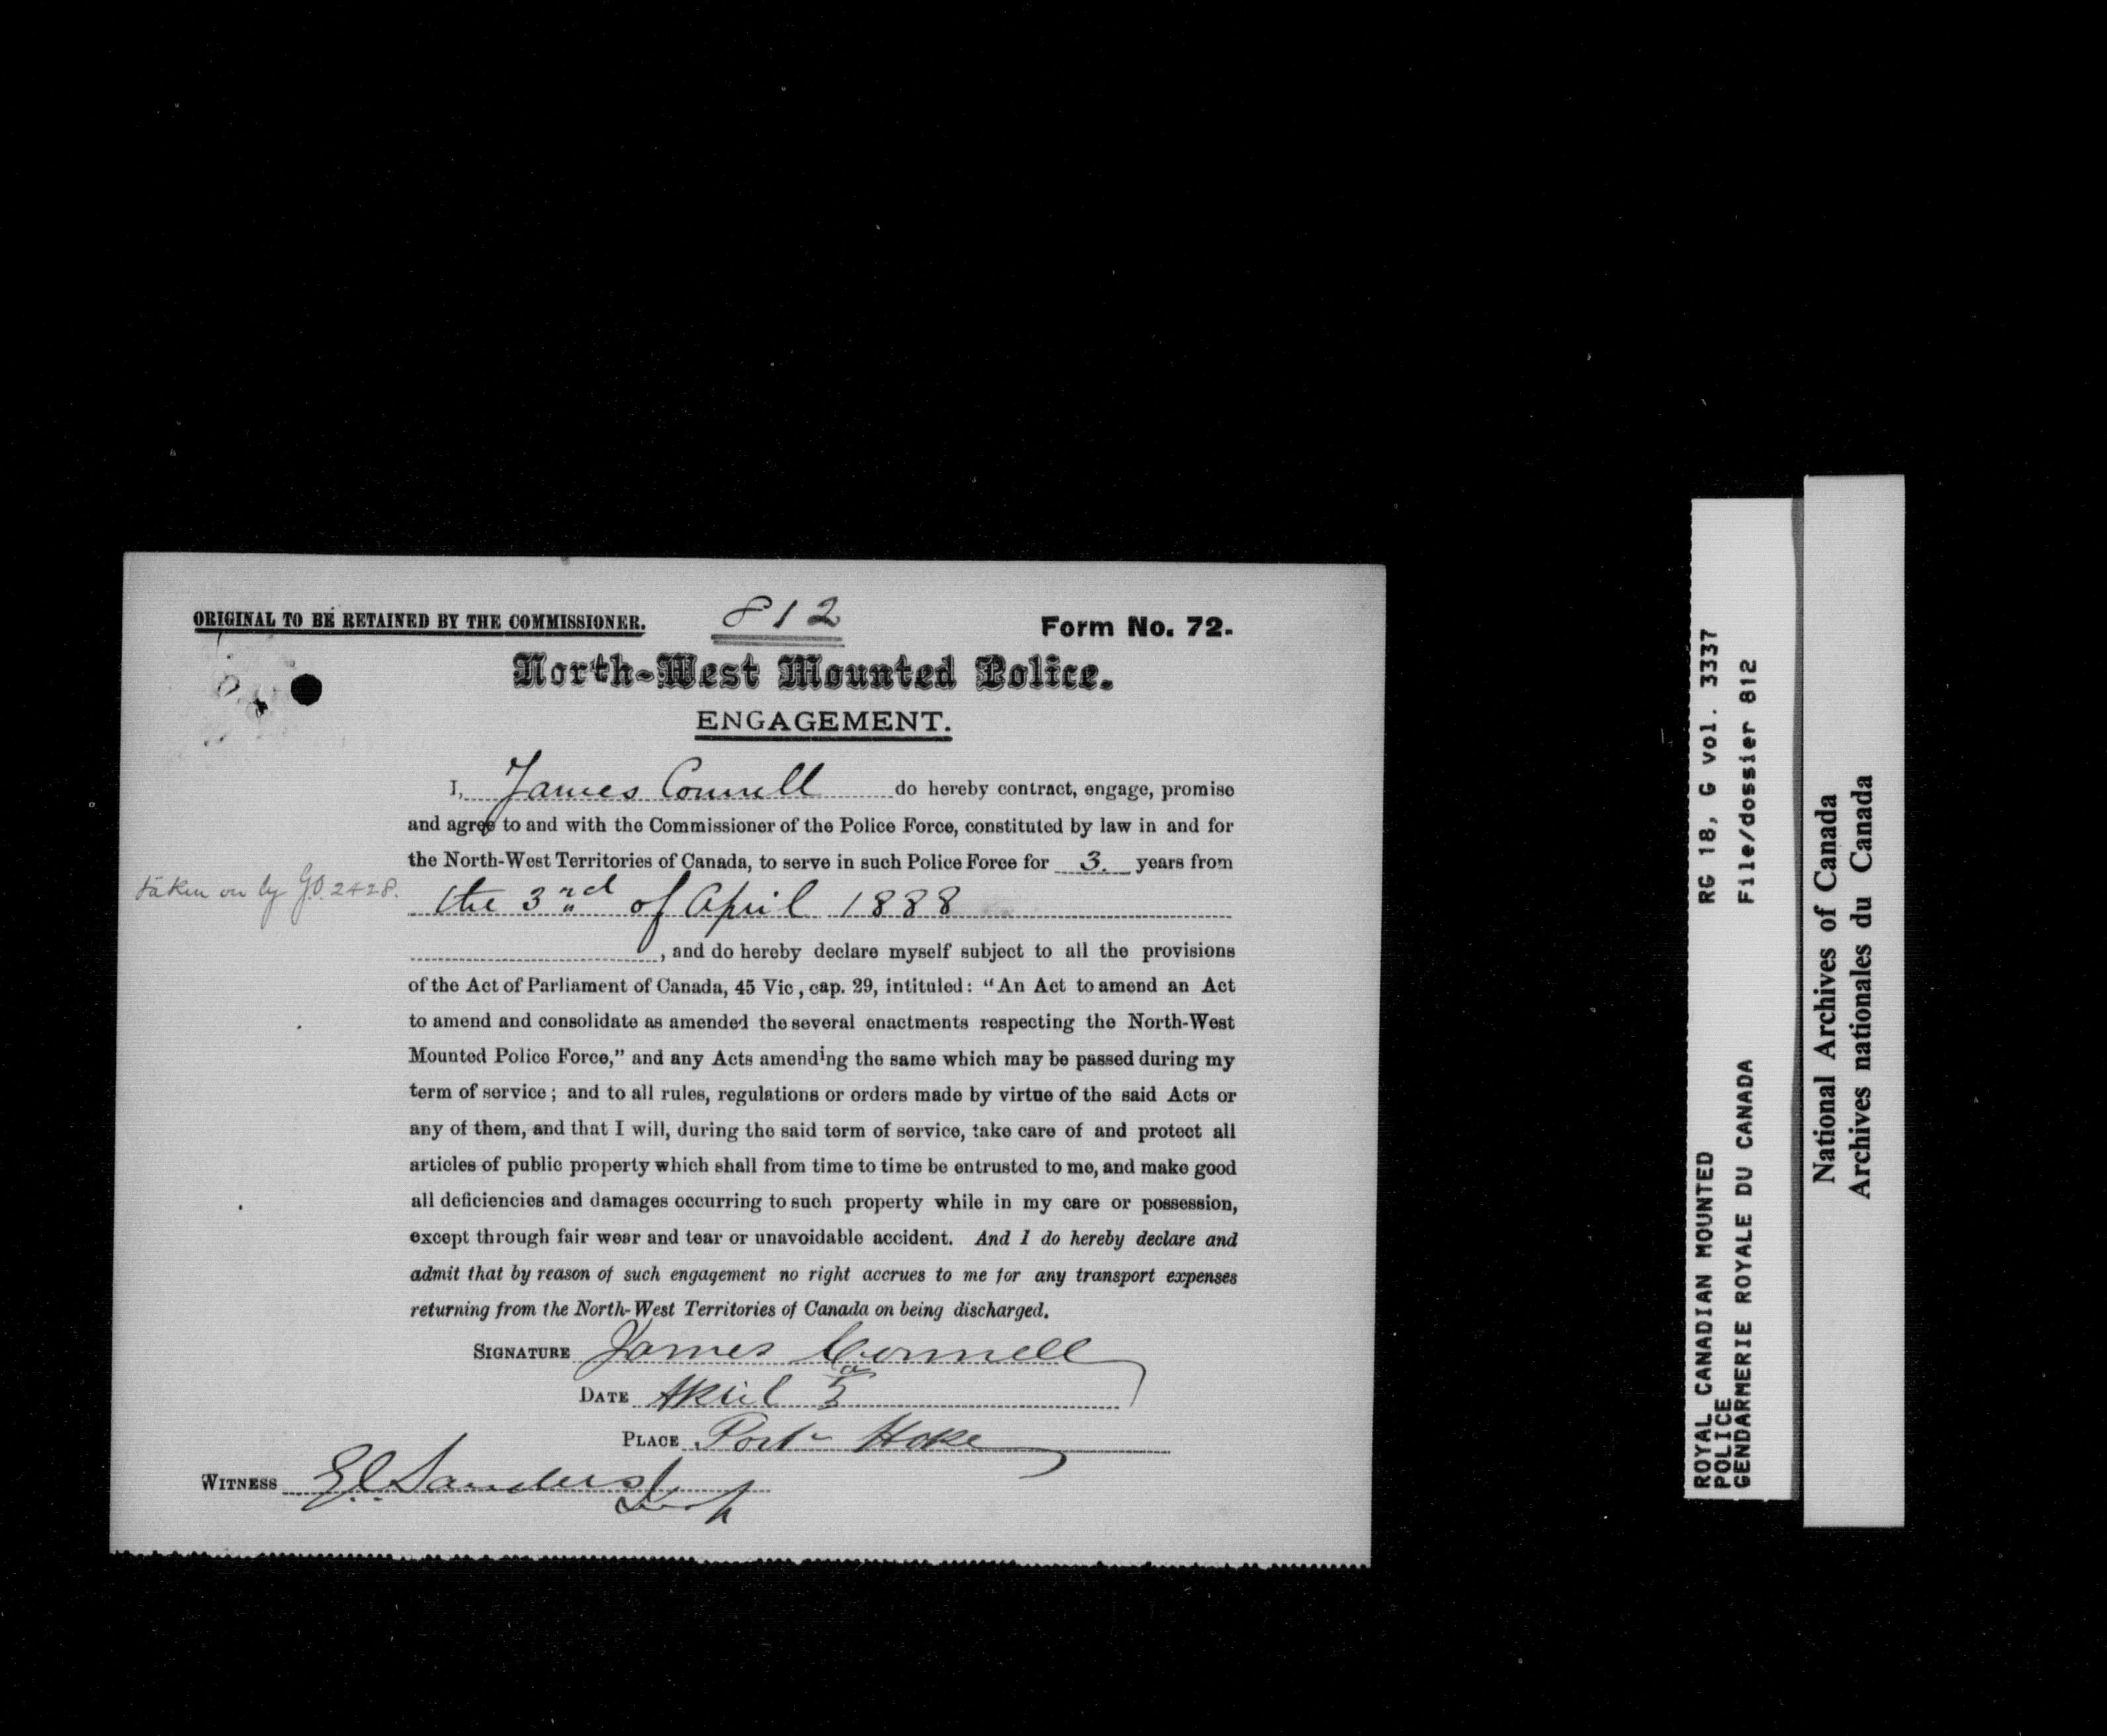 ORIGINAL TO BE RETAINED BY THE COMMISSIONER.
812
Form No. 72.
North-West Mounted Police.
ENGAGEMENT.
I, James Connell do hereby contract, engage, promise
and agree to and with the Commissioner of the Police Force, constituted by law in and for
the North-West Territories of Canada, to serve in such Police Force for 3. years from
taken on by G.O. 2428.
the 3rd of April 1888
, and do hereby declare myself subject to all the provisions
of the Act of Parliament of Canada, 45 Vic, cap. 29, intituled: “An Act to amend an Act
to amend and consolidate as amended the several enactments respecting the North-West
Mounted Police Force,” and any Acts amending the same which may be passed during my
term of service; and to all rules, regulations or orders made by virtue of the said Acts or
any of them, and that I will, during the said term of service, take care of and protect all
articles of public property which shall from time to time be entrusted to me, and make good
all deficiencies and damages occurring to such property while in my care or possession,
except through fair wear and tear or unavoidable accident. And I do hereby declare and
admit that by reason of such engagement no right accrues to me for any transport expenses
returning from the North-West Territories of Canada on being discharged.
SIGNATURE James Connell
DATE April 3
PLACE Port Hope
WITNESS G.E. Sanders
ROYAL CANADIAN MOUNTED RG 18, G vol. 3337
POLICE
GENDARMERIE ROYALE DU CANADA File/dossier 812
National Archives of Canada
Archives nationales du Canada